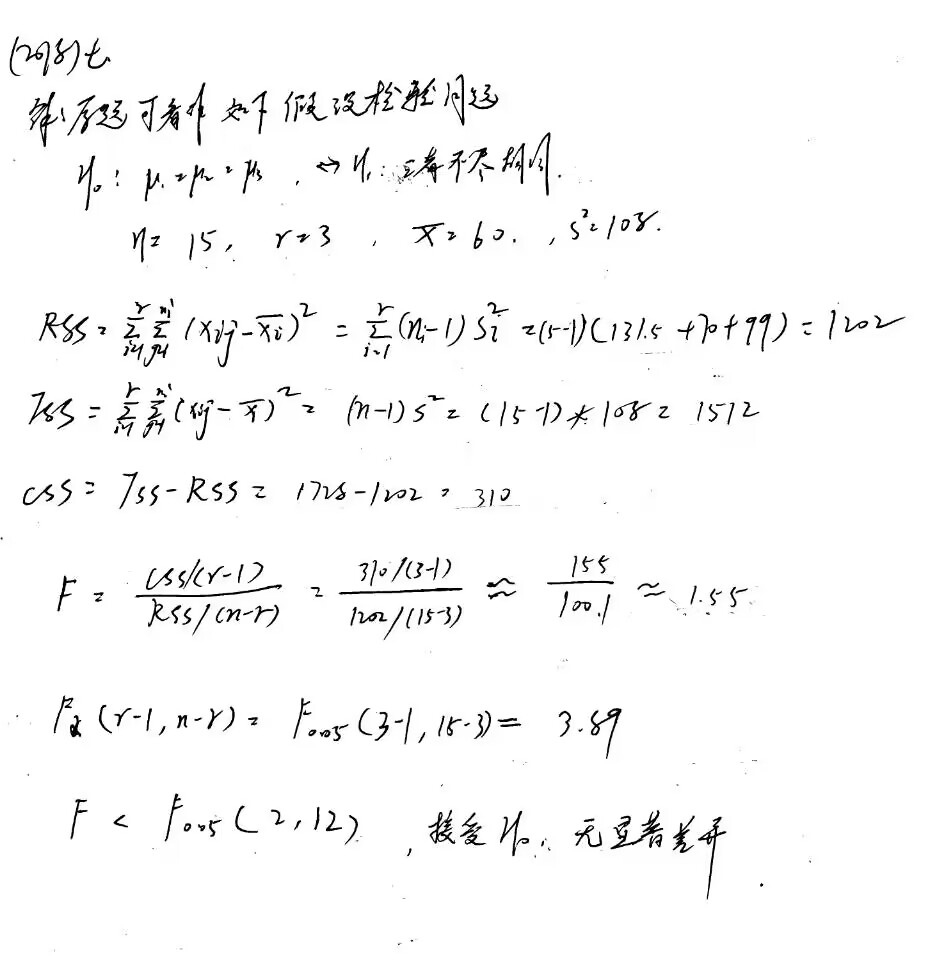 (2018)七
解:原题可看作 如下 假设检验问题
H₀: μ₁=μ₂=μ₃ , ↔ H₁: 三者不尽相同.
n= 15, r=3 , x̄=60. , s²=108.
RSS= Σ_{i=1}^{r} Σ_{j=1}^{n_i} (x_{ij}-x̄_i)² = Σ_{i=1}^{r} (n_i-1) S_i² =(5-1)(131.5+70+99)=1202
TSS= Σ_{i=1}^{r} Σ_{j=1}^{n_i} (x_{ij}-x̄)²= (n-1)s²= (15-1)*108= 1512
CSS= TSS-RSS= 1728-1202= 310
F = CSS/(r-1) / RSS/(n-r) = 310/(3-1) / 1202/(15-3) ≈ 155 / 100.1 ≈ 1.55
F_α (r-1, n-r)= F_{0.05}(3-1, 15-3)= 3.89
F < F_{0.05}(2,12) , 接受H₀, 无显著差异.